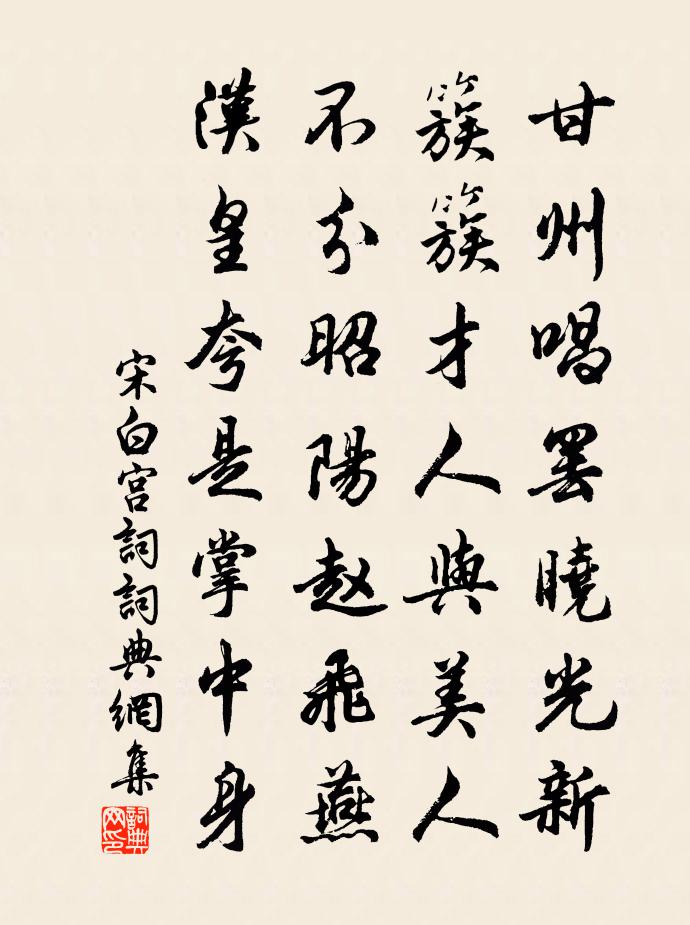 甘州唱罷曉光新
簇簇才人與美人
不分昭陽赵飛燕
漢皇夸是掌中身
宋白宫詞詞典網集
詞典网印